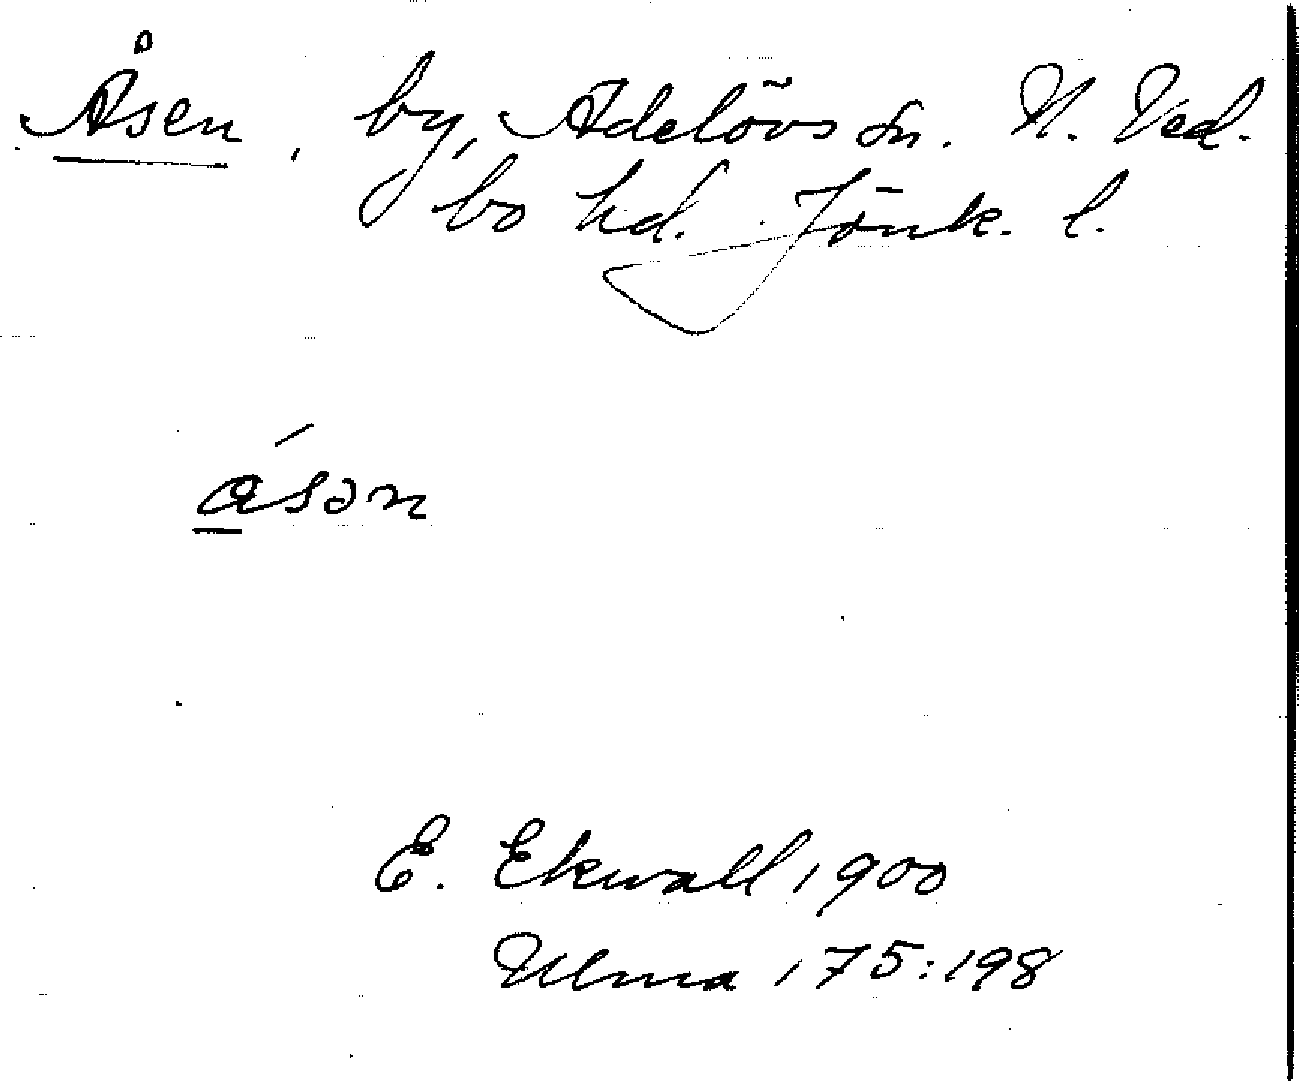 Åsen, by, Adelövs sn. N. Ved-
bo hd. Jönk. l.
åsən
E. Ekwall 1900
Ulma 175:198